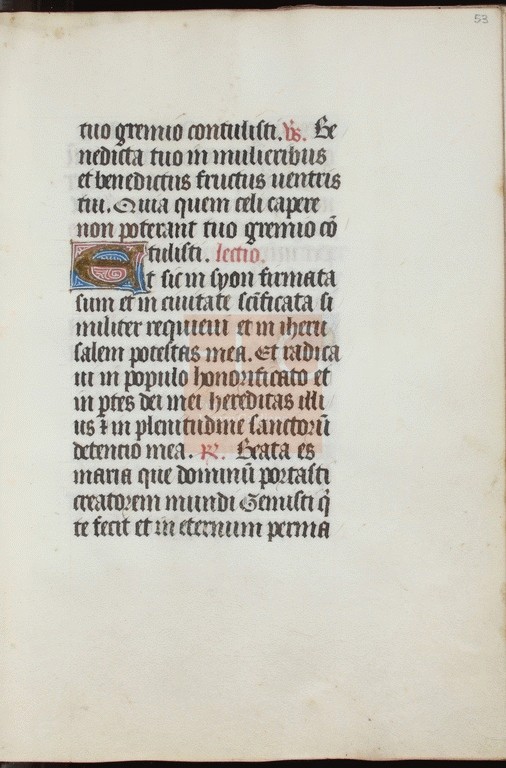 53
tuo gremio contulisti. v̄s. Be
nedicta tuo in mulieribus
et benedictus fructus uentris
tui. Quia quem celi capere
non poterant tuo gremio cō
tulisti. lectio.
Et sic in syon firmata
sum et in ciuitate sc̄ificata si
militer requieui et in iheru
salem potestas mea. Et radica
ui in populo honorificato et
in ptes dei mei hereditas illi
us ⁊ in plenitudine sanctorū
detencio mea. R. Beata es
maria que dominū portasti
creatorem mundi Genuisti q̄
te fecit et in eternum perma